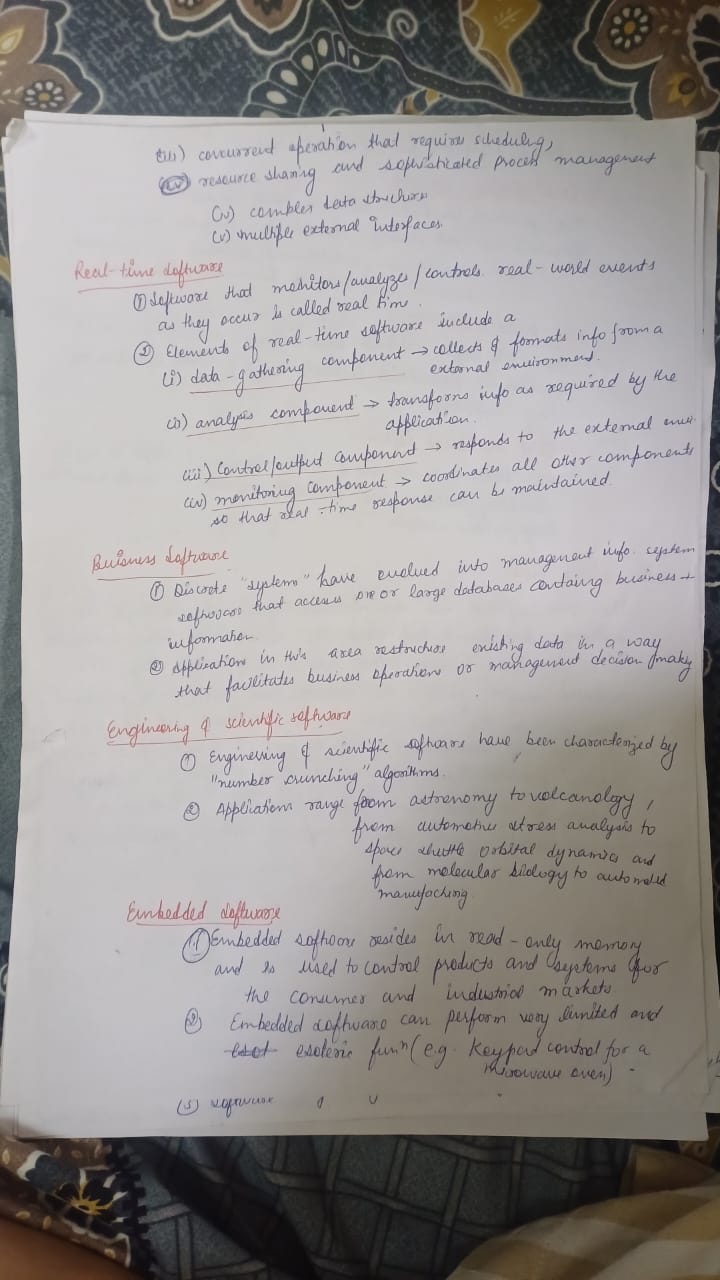 (iii) concurrent operation that require scheduling,
(iv) resource sharing and sophisticated process management
(iv) complex data structure
(v) multiple external interfaces.
Real-time software
① Software that monitors/analyzes/controls real-world events
as they occur is called real time.
② Elements of real-time software include a
(i) data-gathering component → collects & formats info from a
external environment.
(ii) analysis component → transforms info as required by the
application.
(iii) Control/output component → responds to the external envir.
(iv) monitoring component → coordinates all other components
so that real-time response can be maintained.
Business Software
① Discrete "systems" have evolved into management info. system
software that access one or large databases containg business
information.
② Applications in this area restructure existing data in a way
that facilitates business operations or management decision making
Engineering & scientific software
① Engineering & scientific software have been characterized by
"number crunching" algorithms.
② Applications range from astronomy to volcanology,
from automotive stress analysis to
space shuttle orbital dynamics and
from molecular biology to automated
manufaching
Embedded software
① Embedded software resides in read-only memory
and is used to control products and systems for
the consumer and industrial markets.
② Embedded software can perform very limited and
esoteric funⁿ (e.g. Keypad control for a
microwave oven).
(5) software